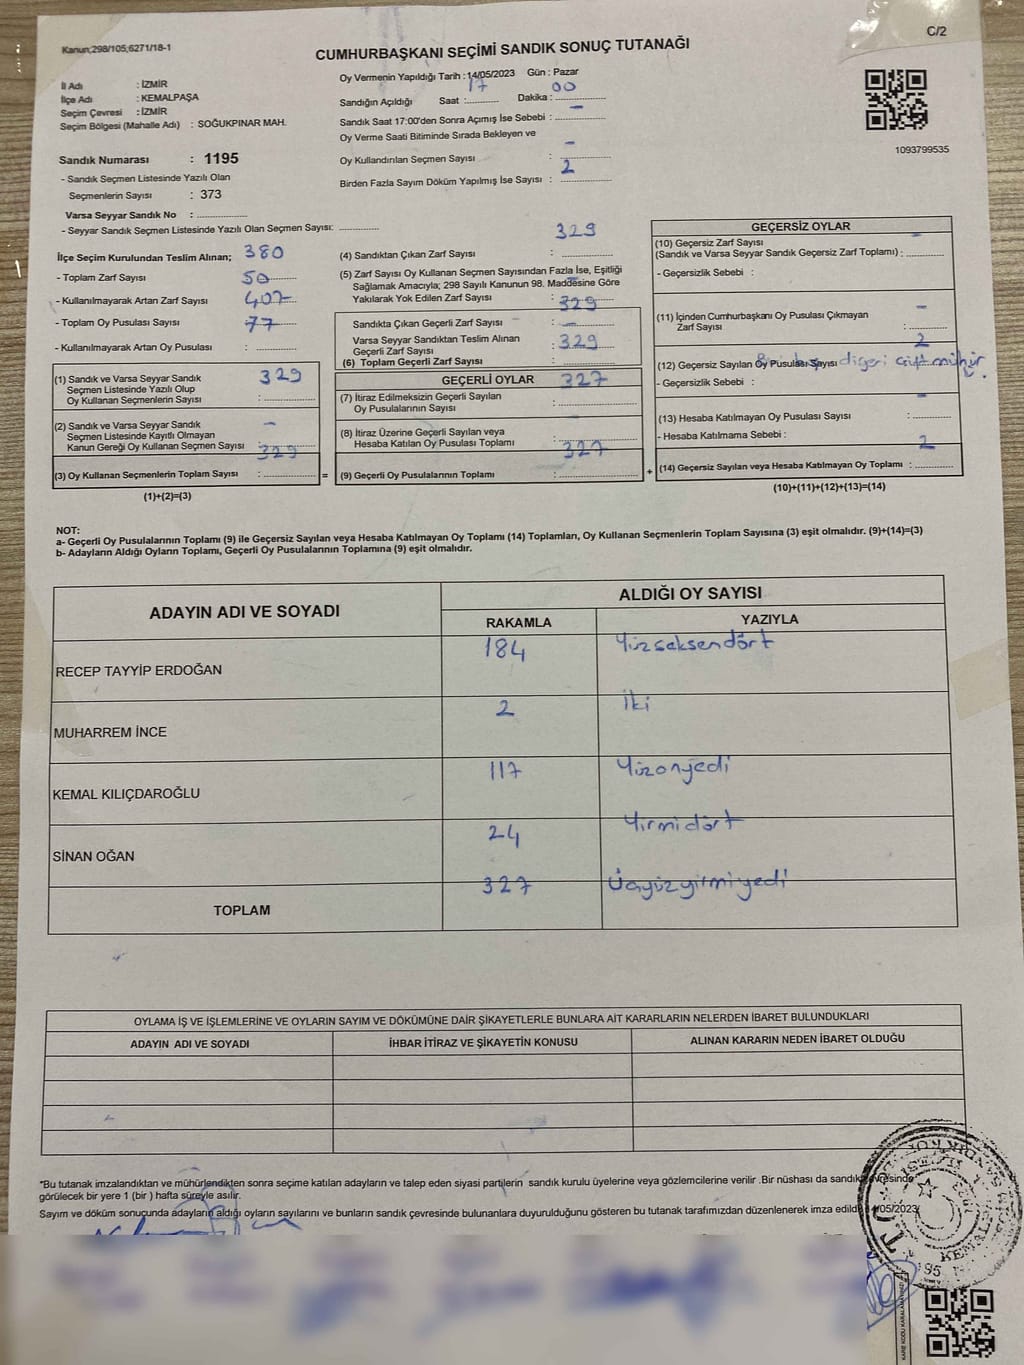 Kanun;298/105;6271/18-1
C/2
CUMHURBAŞKANI SEÇİMİ SANDIK SONUÇ TUTANAĞI
İl Adı : İZMİR
İlçe Adı : KEMALPAŞA
Seçim Çevresi : İZMİR
Seçim Bölgesi (Mahalle Adı) : SOĞUKPINAR MAH.
Sandık Numarası : 1195
- Sandık Seçmen Listesinde Yazılı Olan
Seçmenlerin Sayısı : 373
Varsa Seyyar Sandık No : ................
- Seyyar Sandık Seçmen Listesinde Yazılı Olan Seçmen Sayısı: .............
Oy Vermenin Yapıldığı Tarih : 14/05/2023 Gün : Pazar
17 00
Sandığın Açıldığı Saat :.......... Dakika :................
Sandık Saat 17:00'den Sonra Açımış İse Sebebi : ................
-
Oy Verme Saati Bitiminde Sırada Bekleyen ve
Oy Kullandırılan Seçmen Sayısı : ................
-
Birden Fazla Sayım Döküm Yapılmış İse Sayısı : ................
2
1093799535
İlçe Seçim Kurulundan Teslim Alınan;
- Toplam Zarf Sayısı 380
- Kullanılmayarak Artan Zarf Sayısı 50
- Toplam Oy Pusulası Sayısı 407
- Kullanılmayarak Artan Oy Pusulası : 77
(1) Sandık ve Varsa Seyyar Sandık
Seçmen Listesinde Yazılı Olup
Oy Kullanan Seçmenlerin Sayısı : 329
(2) Sandık ve Varsa Seyyar Sandık
Seçmen Listesinde Kayıtlı Olmayan
Kanun Gereği Oy Kullanan Seçmen Sayısı : -
(3) Oy Kullanan Seçmenlerin Toplam Sayısı : 329
(1)+(2)=(3)
=
(4) Sandıktan Çıkan Zarf Sayısı : 329
(5) Zarf Sayısı Oy Kullanan Seçmen Sayısından Fazla İse, Eşitliği
Sağlamak Amacıyla; 298 Sayılı Kanunun 98. Maddesine Göre
Yakılarak Yok Edilen Zarf Sayısı : -
Sandıkta Çıkan Geçerli Zarf Sayısı : 329
Varsa Seyyar Sandıktan Teslim Alınan
Geçerli Zarf Sayısı : -
(6) Toplam Geçerli Zarf Sayısı : 329
GEÇERLİ OYLAR
(7) İtiraz Edilmeksizin Geçerli Sayılan
Oy Pusulalarının Sayısı : 327
(8) İtiraz Üzerine Geçerli Sayılan veya
Hesaba Katılan Oy Pusulası Toplamı : -
(9) Geçerli Oy Pusulalarının Toplamı : 327
+
GEÇERSİZ OYLAR
(10) Geçersiz Zarf Sayısı
(Sandık ve Varsa Seyyar Sandık Geçersiz Zarf Toplamı) : -
- Geçersizlik Sebebi :
(11) İçinden Cumhurbaşkanı Oy Pusulası Çıkmayan
Zarf Sayısı : -
(12) Geçersiz Sayılan Oy Pusulası Sayısı : 2
- Geçersizlik Sebebi : diğeri çift mühür.
(13) Hesaba Katılmayan Oy Pusulası Sayısı : -
- Hesaba Katılmama Sebebi :
(14) Geçersiz Sayılan veya Hesaba Katılmayan Oy Toplamı : 2
(10)+(11)+(12)+(13)=(14)
NOT:
a- Geçerli Oy Pusulalarının Toplamı (9) ile Geçersiz Sayılan veya Hesaba Katılmayan Oy Toplamı (14) Toplamları, Oy Kullanan Seçmenlerin Toplam Sayısına (3) eşit olmalıdır. (9)+(14)=(3)
b- Adayların Aldığı Oyların Toplamı, Geçerli Oy Pusulalarının Toplamına (9) eşit olmalıdır.
ADAYIN ADI VE SOYADI ALDIĞI OY SAYISI
RAKAMLA YAZIYLA
RECEP TAYYİP ERDOĞAN 184 Yüzseksendört
MUHARREM İNCE 2 İki
KEMAL KILIÇDAROĞLU 117 Yüzonyedi
SİNAN OĞAN 24 Yirmidört
TOPLAM 327 Üçyüzyirmiyedi
OYLAMA İŞ VE İŞLEMLERİNE VE OYLARIN SAYIM VE DÖKÜMÜNE DAİR ŞİKAYETLERLE BUNLARA AİT KARARLARIN NELERDEN İBARET BULUNDUKLARI
ADAYIN ADI VE SOYADI İHBAR İTİRAZ VE ŞİKAYETİN KONUSU ALINAN KARARIN NEDEN İBARET OLDUĞU
*Bu tutanak imzalandıktan ve mühürlendikten sonra seçime katılan adayların ve talep eden siyasi partilerin sandık kurulu üyelerine veya gözlemcilerine verilir .Bir nüshası da sandık çevresinde
görülecek bir yere 1 (bir ) hafta süreyle asılır.
Sayım ve döküm sonucunda adayların aldığı oyların sayılarını ve bunların sandık çevresinde bulunanlara duyurulduğunu gösteren bu tutanak tarafımızdan düzenlenerek imza edildi. 14/05/2023